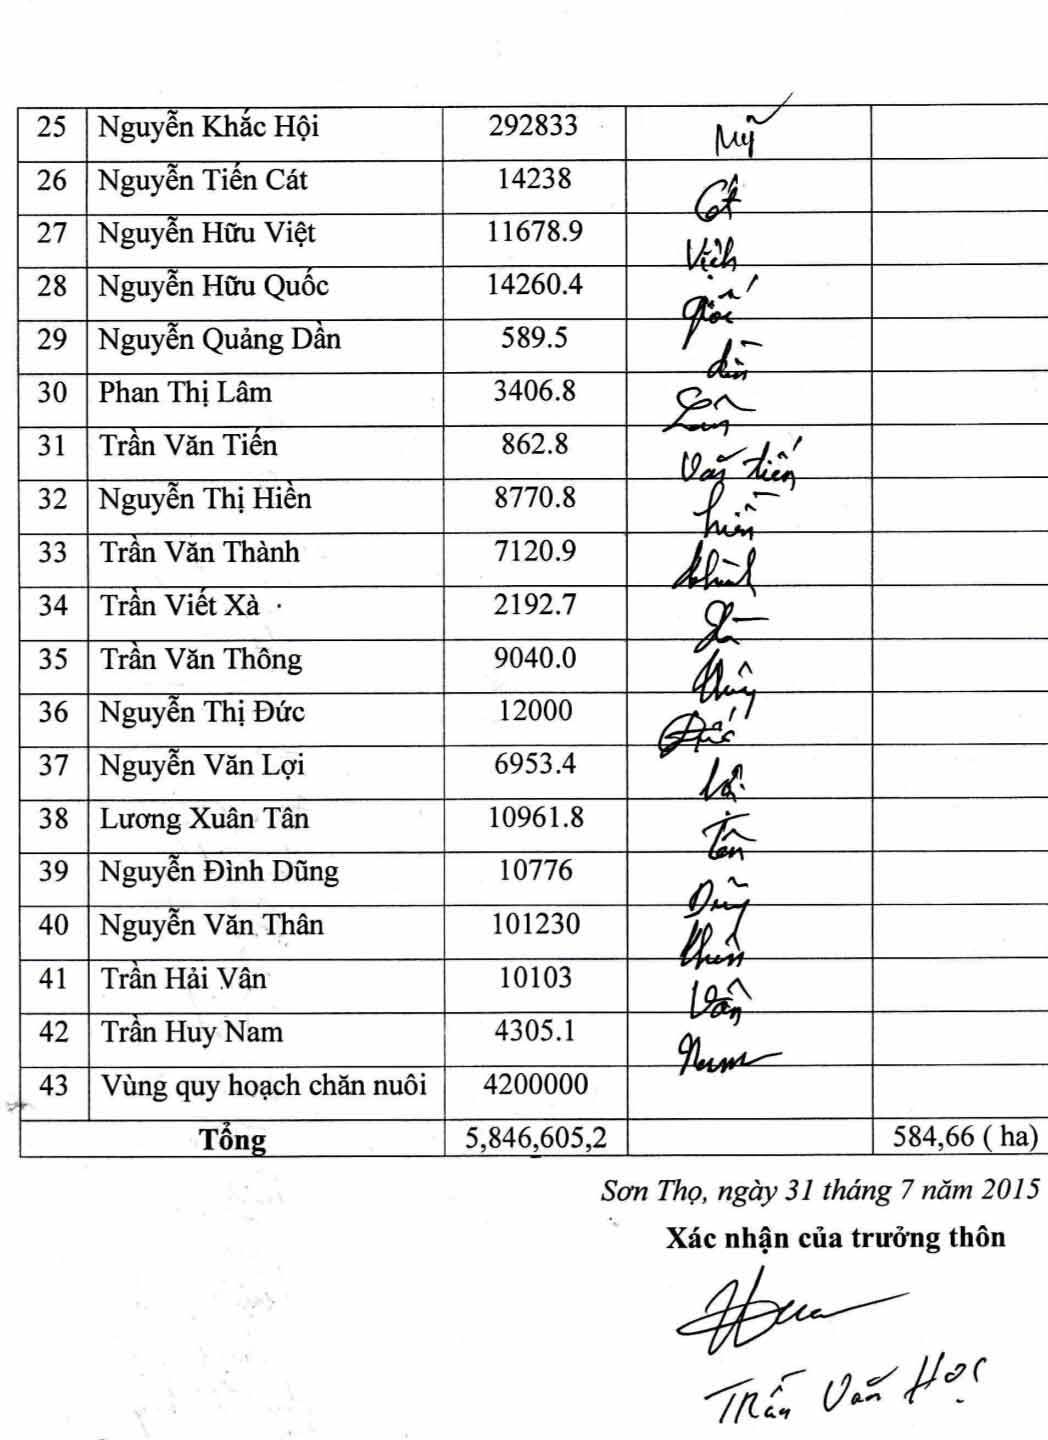 25 Nguyễn Khắc Hội 292833 Mỹ
26 Nguyễn Tiến Cát 14238 Cát
27 Nguyễn Hữu Việt 11678.9
28 Nguyễn Hữu Quốc 14260.4 Quốc
29 Nguyễn Quảng Dần 589.5 dần
30 Phan Thị Lâm 3406.8 Lâm
31 Trần Văn Tiến 862.8 Văn tiến
32 Nguyễn Thị Hiền 8770.8 hiền
33 Trần Văn Thành 7120.9
34 Trần Viết Xà 2192.7 Xà
35 Trần Văn Thông 9040.0
36 Nguyễn Thị Đức 12000 Đức
37 Nguyễn Văn Lợi 6953.4
38 Lương Xuân Tân 10961.8 Tân
39 Nguyễn Đình Dũng 10776 Dũng
40 Nguyễn Văn Thân 101230
41 Trần Hải Vân 10103 Vân
42 Trần Huy Nam 4305.1 Nam
43 Vùng quy hoạch chăn nuôi 4200000
Tổng 5,846,605,2 584,66 ( ha)
Sơn Thọ, ngày 31 tháng 7 năm 2015
Xác nhận của trưởng thôn
Trần Văn Học